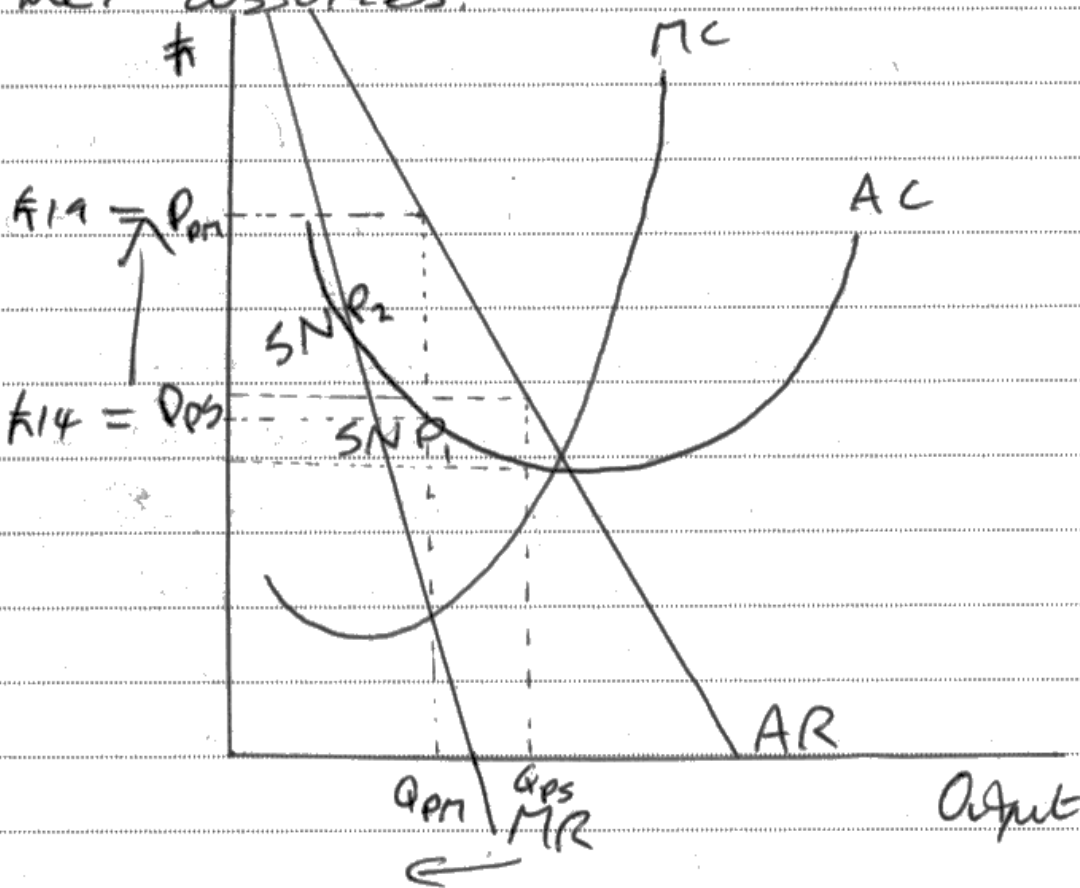 £
MC
AC
£19 = Ppm
SNP2
£14 = Pps
SNP1
AR
Qpm
Qps
MR
Output